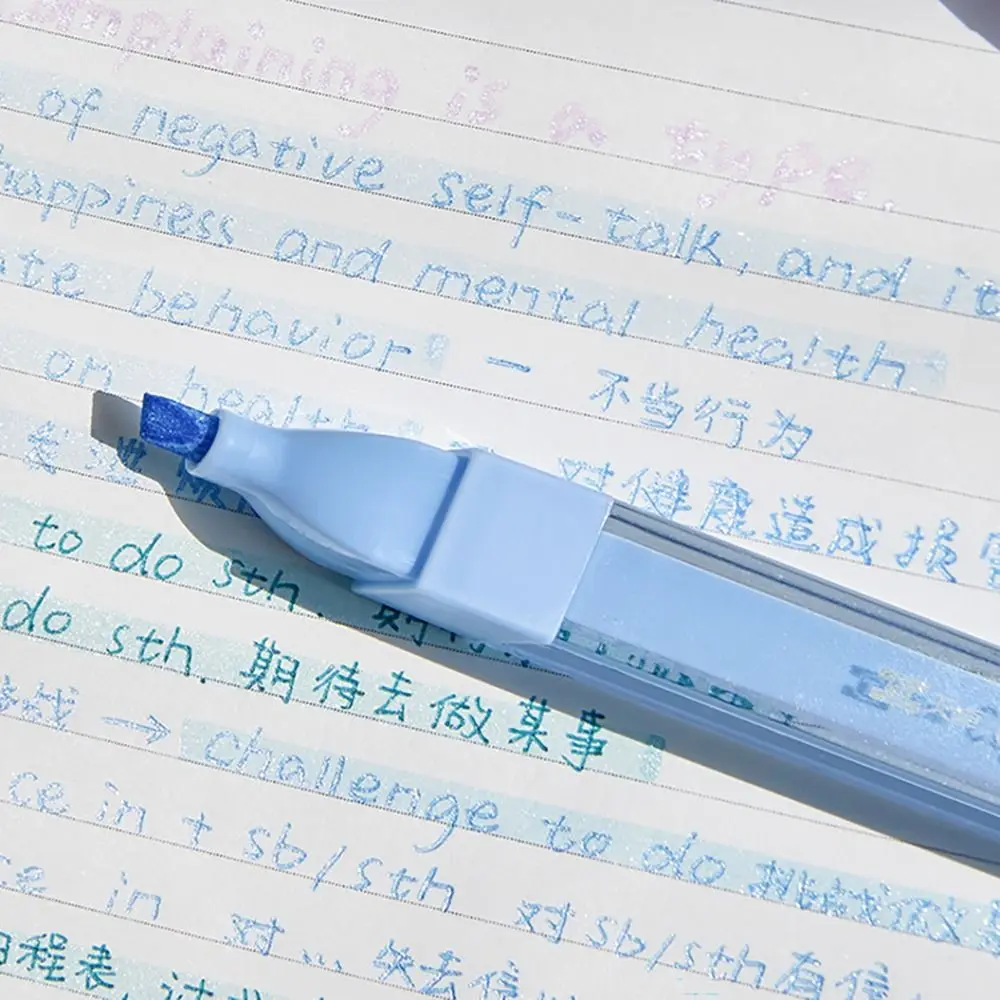 mplaining is a type.
of negative self-talk, and it
happiness and mental health
te behavior — 不当行为
on health 对健康造成损
to do sth. 期待
do sth. 期待去做某事
战 → challenge to do 挑战做
ce in + sb/sth 对sb/sth有信
ce in 对... 失去信
程表,